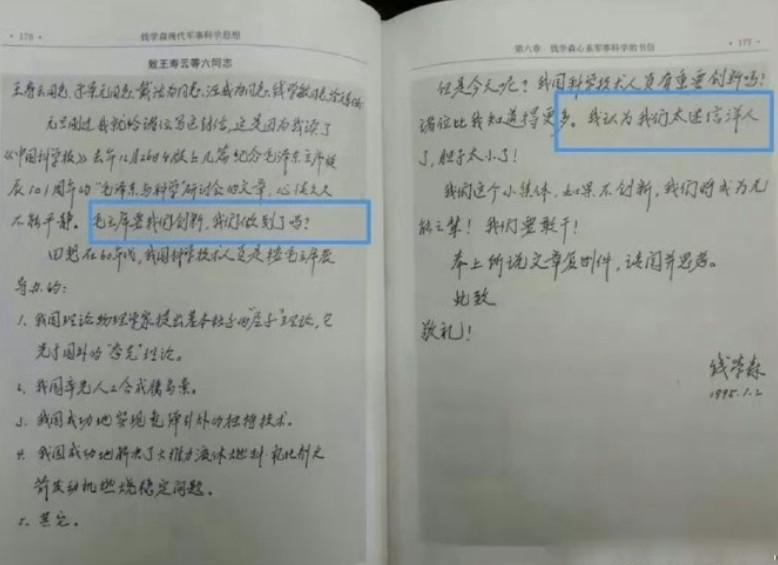 · 176 ·
钱学森现代军事科学思想
致王寿云等六同志
王寿云同志、于景元同志、戴汝为同志、汪成为同志、钱学敏同志、涂元季同志:
元旦刚过我就给诸位写这封信,这是因为我读了
《中国科学报》去年12月26日4版上几篇纪念毛泽东主席诞
辰101周年的“毛泽东与科学”研讨会的文章,心情久久
不能平静。毛主席要我们创新,我们做到了吗?
回想在60年代,我国科学技术人员是按毛主席教
导办的:
1. 我国理论物理学家提出基本粒子的“层子”理论,它
先于国外的“夸克”理论。
2. 我国率先人工合成胰岛素。
3. 我国成功地实现氢弹引外的独特技术。
4. 我国成功地解决了大推力液体燃料-氧化剂火
箭发动机燃烧稳定问题。
5. 其它。
第六章 钱学森心系军事科学的书信
· 177 ·
但是今天呢?我国科学技术人员有重要创新吗?
诸位比我知道得更多。我认为我们太迷信洋人
了,胆子太小了!
我们这个小集体,如果不创新,我们将成为无
能之辈!我们要敢干!
奉上所说文章复印件,请阅并思考。
此致
敬礼!
钱学森
1995.1.2